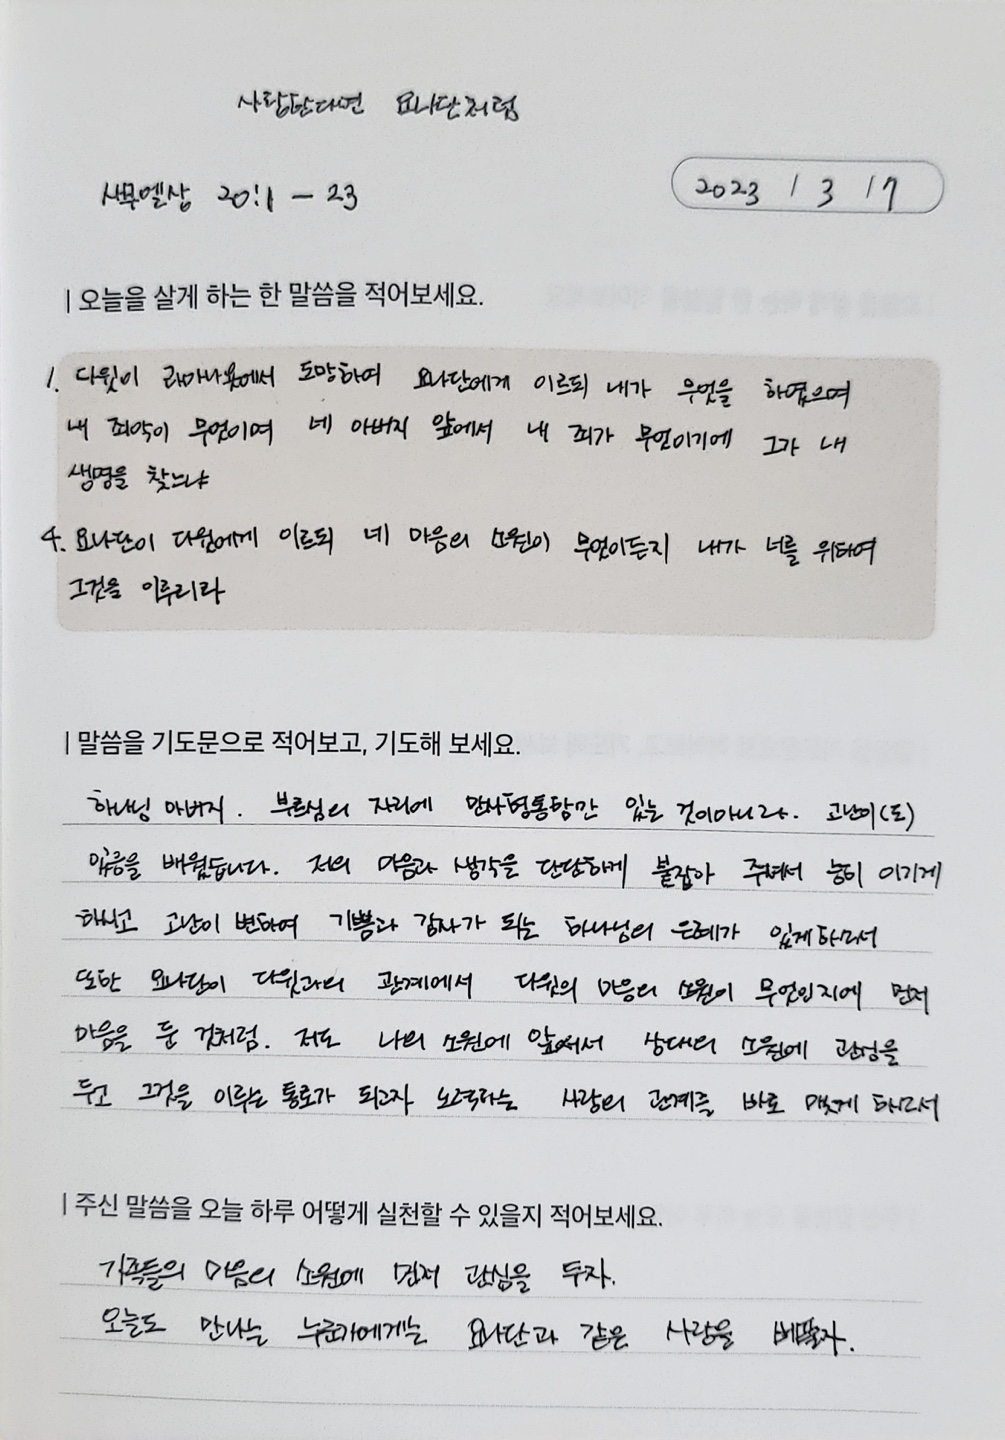 사랑한다면 요나단처럼
사무엘상 20:1 - 23
2023 / 3 / 7
| 오늘을 살게 하는 한 말씀을 적어보세요.
1. 다윗이 라마나욧에서 도망하여 요나단에게 이르되 내가 무엇을 하였으며
내 죄악이 무엇이며 네 아버지 앞에서 내 죄가 무엇이기에 그가 내
생명을 찾느냐
4. 요나단이 다윗에게 이르되 네 마음의 소원이 무엇이든지 내가 너를 위하여
그것을 이루리라
| 말씀을 기도문으로 적어보고, 기도해 보세요.
하나님 아버지. 부르심의 자리에 만사형통함만 있는 것이아니라. 고난이(도)
있음을 배웠습니다. 저의 마음과 생각을 단단하게 붙잡아 주셔서 능히 이기게
하시고 고난이 변하여 기쁨과 감사가 되는 하나님의 은혜가 있게하소서
또한 요나단이 다윗과의 관계에서 다윗의 마음의 소원이 무엇인지에 먼저
마음을 둔 것처럼. 저도 나의 소원에 앞서서 상대의 소원에 관심을
두고 그것을 이루는 통로가 되고자 노력하는 사랑의 관계를 바로 맺게 하소서
| 주신 말씀을 오늘 하루 어떻게 실천할 수 있을지 적어보세요.
가족들의 마음의 소원에 먼저 관심을 두자.
오늘도 만나는 누군가에게는 요나단과 같은 사랑을 베풀자.